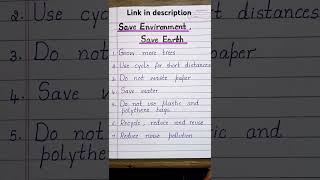 Link in description
Save Environment,
Save Earth
1. Grow more trees
2. Use cycle for short distances
3. Do not waste paper
4. Save water
5. Do not use plastic and
polythene bags
6. Recycle, reduce and reuse
7. Reduce noise pollution
2. Use c
distances
3. Do no
4. Save
5. Do not
polythe
ic and